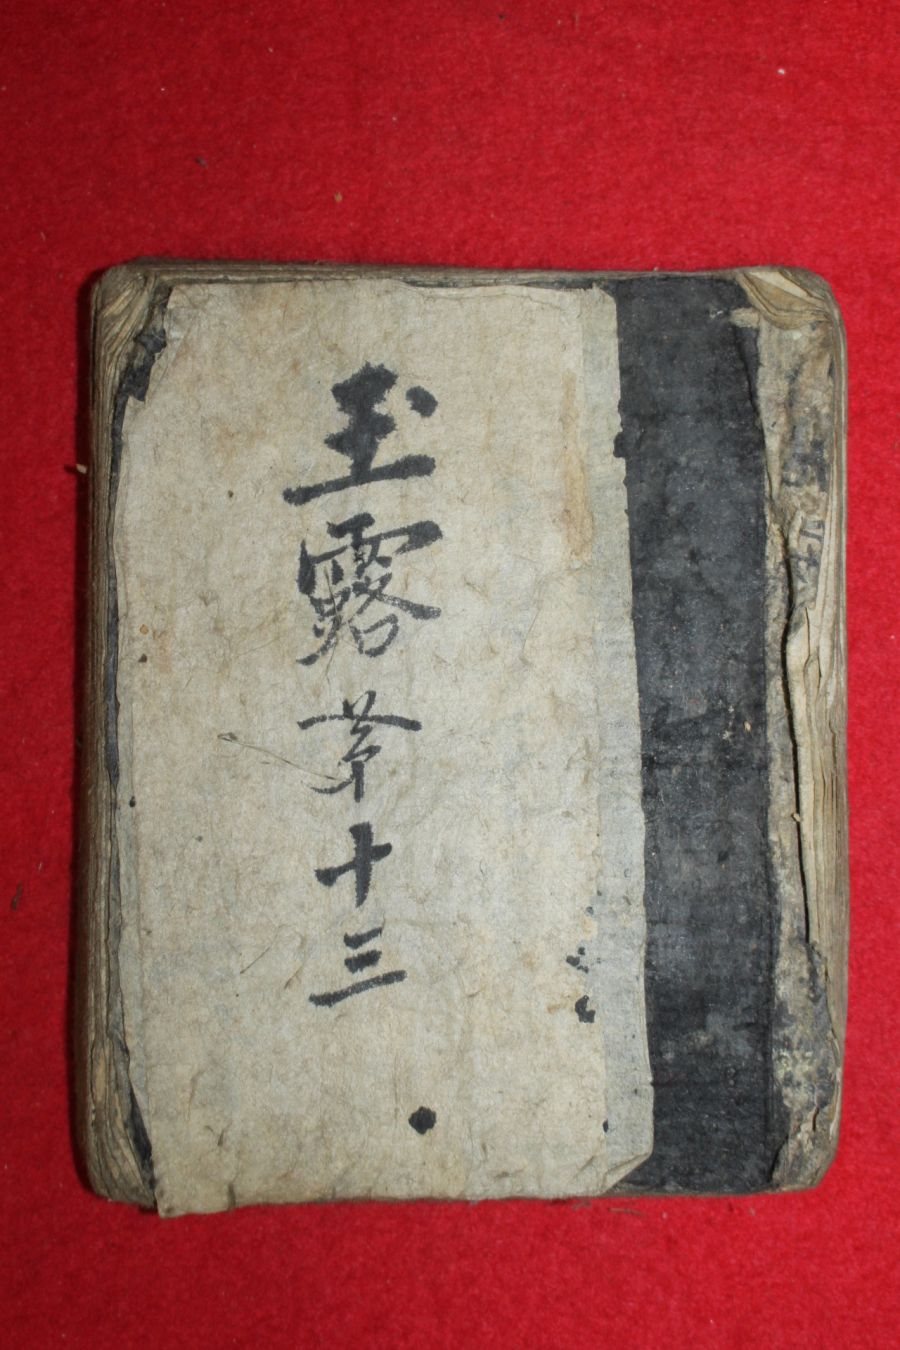 玉露第十三